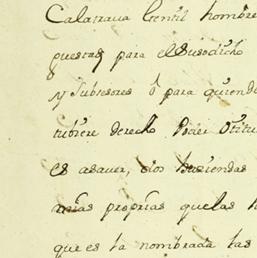 Calatrava Gentil hombre
puestas para el Susodicho
y Subsesores ô para quien de
tubiere derecho Poder Otitu
es asauer, dos haziendas
mías proprias que las h
que es la nombrada las